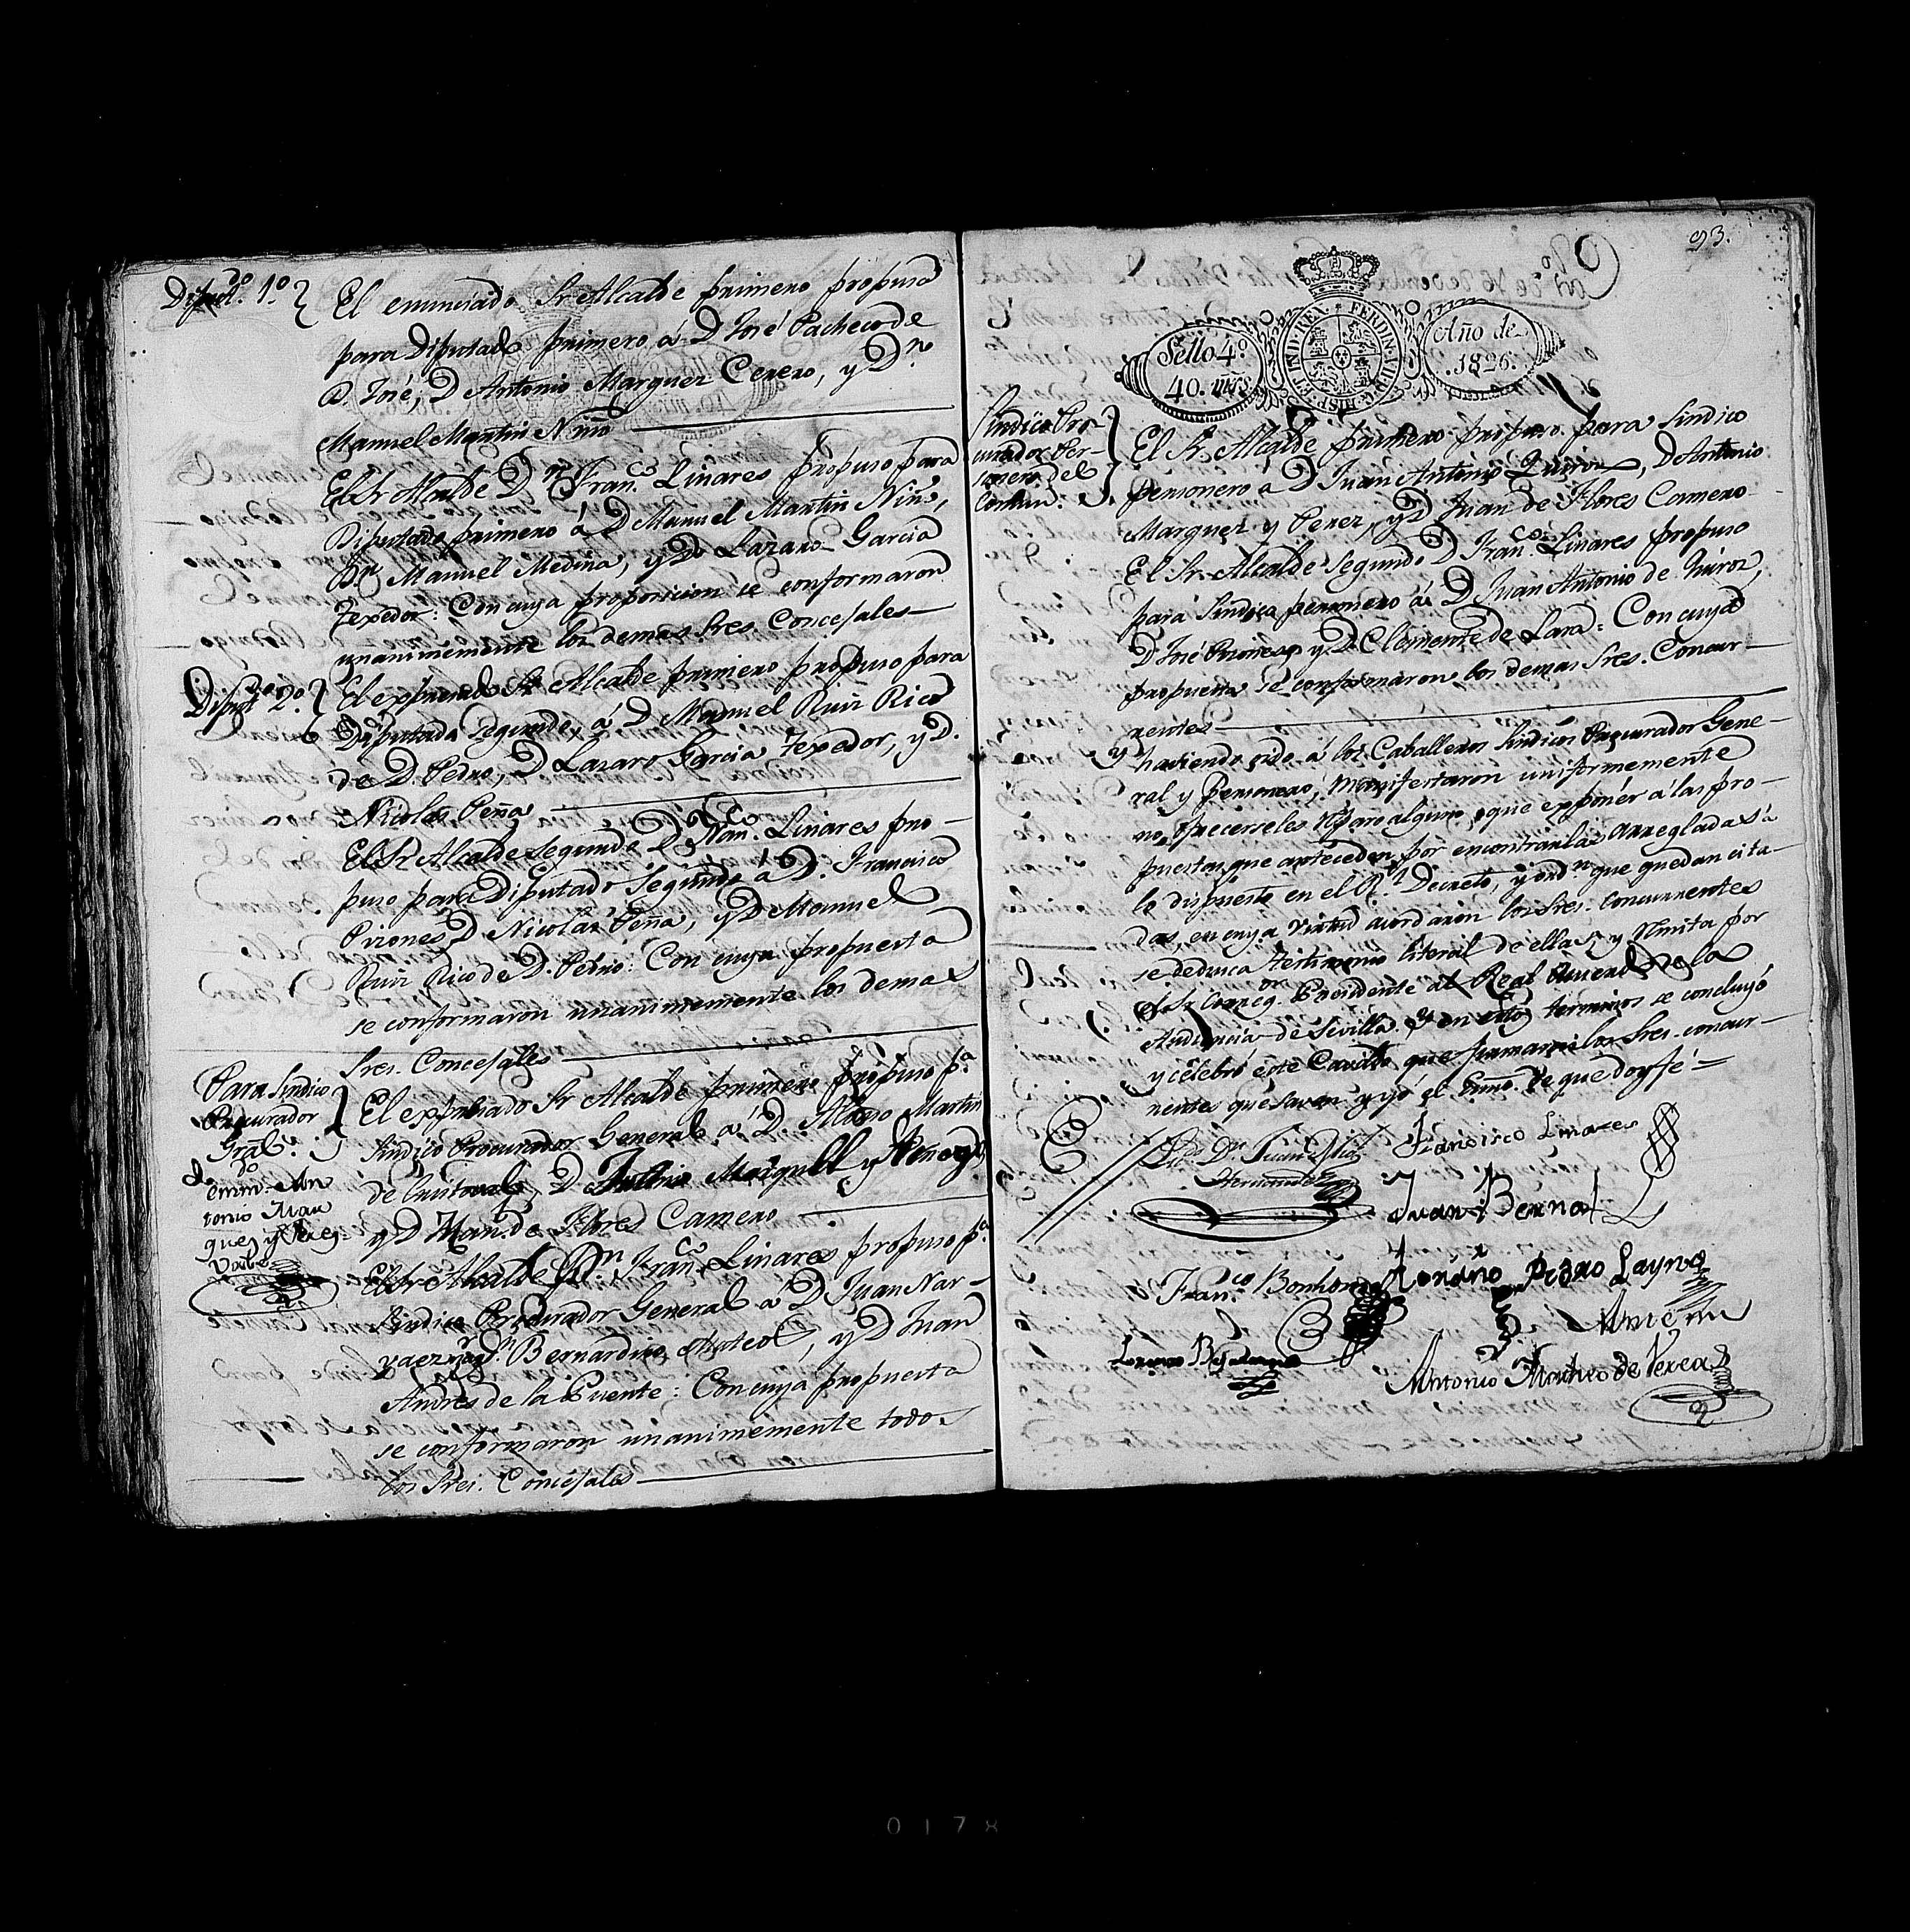 Diput.do 1.o
El enunciado Sr Alcalde primero propuso
para Diputado primero á D José Pacheco de
D José, D Antonio Marquez Cerero, y D.n
Manuel Martin Niño
El Sr Alcalde D.n Fran.co Linares propuso para
Diputado primero á D Manuel Martin Niño,
D.n Manuel Medina, y D Lazaro Garcia
Texedor: Con cuya proposicion se conformaron
unanimemente los demas Sres Concejales
Diput.do 2.o
El expresado Sr Alcalde primero propuso para
Diputado Segundo á D Manuel Ruiz Rico
de D. Pedro, D Lazaro Garcia Texedor, y D.
Nicolas Peña
El Sr Alcalde segundo D Fran.co Linares pro-
puso para Diputado Segundo á D. Francisco
Briones D Nicolas Peña, y D Manuel
Ruiz Rico de D. Pedro: Con cuya propuesta
se conformaron unanimemente los demas
Sres. Concejales
Para Sindico
Procurador
Gral.
El expresado Sr Alcalde primero propuso p.a
Sindico Procurador General á D. Alonso Martin
de D Marquez y Perez
y D Man. de Flores Camero
enm.do An
tonio Mar
quez y Perez
Vale
El Sr Alcalde D.n Fran.co Linares propuso p.a
Sindico Procurador General á D Juan Nar-
vaez D.n Bernardino Mateos, y D Juan
Andres de la Puente: Con cuya propuesta
se conformaron unanimemente todos
los Sres. Concejales
93.
Sello 4.o
40. mrs
HISP. ET IND. REX. FERDIN. VII. D. G.
Año de
1826.
Sindico Pro-
curador Per-
sonero del
Comun.
El Sr. Alcalde primero propuso para Sindico
personero á D Juan Antonio Quiros, D Antonio
Marquez y Perez, y D Juan de Flores Camero
El Sr. Alcalde Segundo D Fran.co Linares propuso
para Sindico personero á D Juan Antonio de Quiros,
D José Briones, y D Clemente de Lara: Con cuya
propuesta se conformaron los demas Sres. Concur-
rentes
y haviendo oido á los Caballeros Sindicos Procurador Gene-
ral y Personero, manifestaron uniformemente
no ofrecerseles reparo alguno que exponer á las pro-
puestas que anteceden por encontrarlas arregladas á
lo dispuesto en el R.l Decreto, y ord.n que quedan cita-
das, en cuya virtud acordaron los Sres. Concurrentes
se deduzca testimonio literal de ellas y remita por
el Sr Correg.or Presidente al Real Acuerdo de la
Audiencia de Sevilla. y en estos terminos se concluyó
y celebró este Cavildo que firmaron los Sres. concur-
rentes que saven y yó el Esno. de que doy fé
Licdo. D.n Juan
Hernandez
Francisco Linares
Juan Bernal
Fran.co Bonhome
Pedro Layna
Lorenzo
Ante mi
Antonio Mateo de Perea
0178